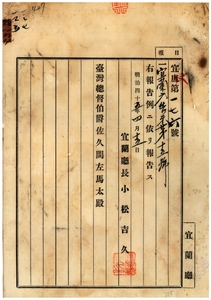 日報
宜庶第一七六號
右報告例ニ依リ報告ス
明治四十五年四月十五日
宜蘭廳長小松吉久
臺灣總督伯爵佐久間左馬太殿
宜蘭廳